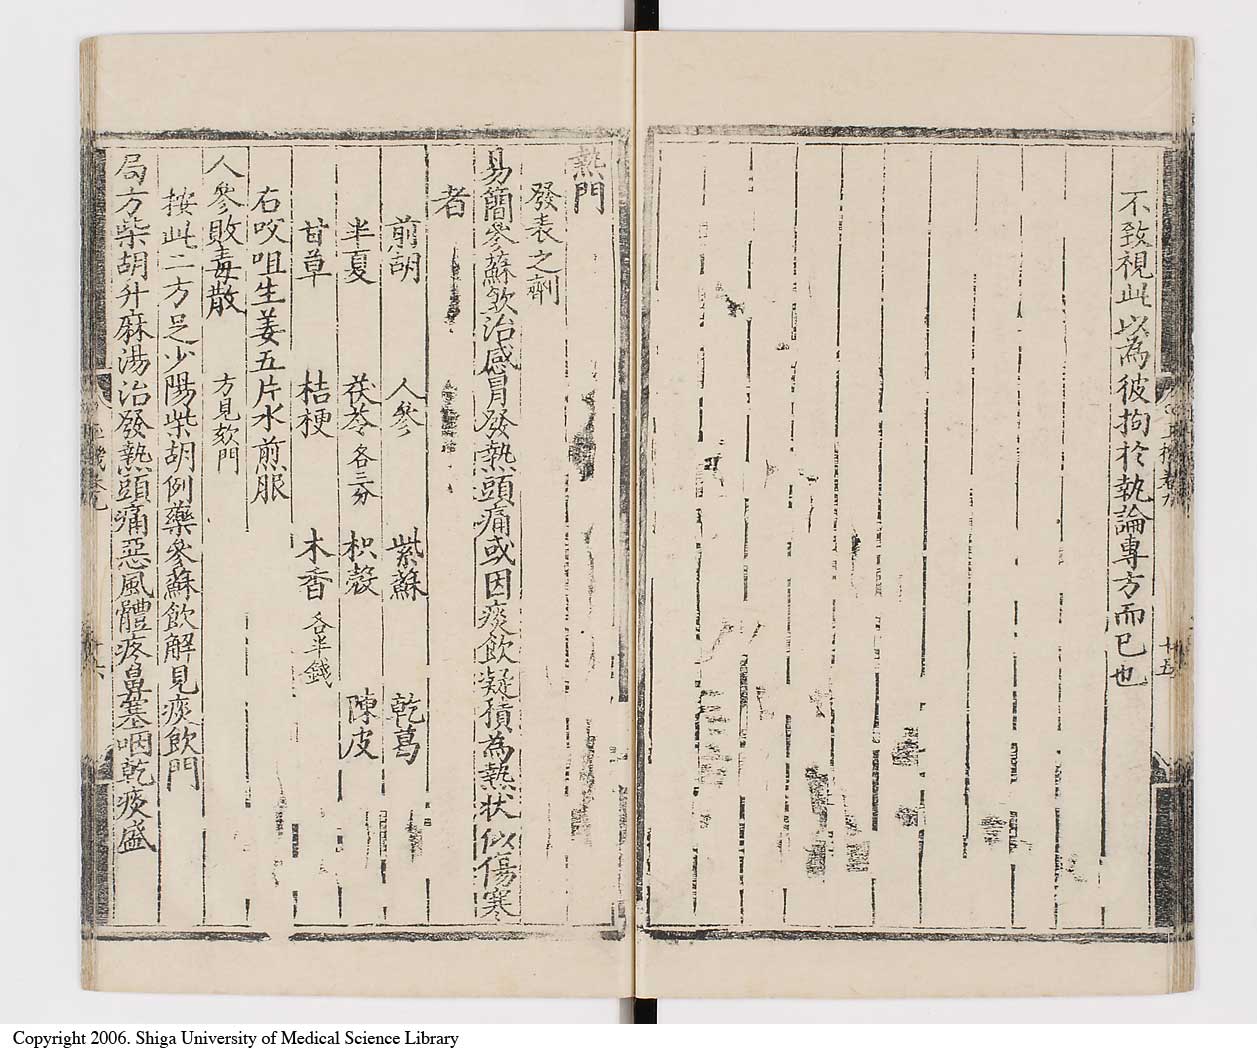 不致視此以為彼拘於執論專方而已也
十五
熱門
發表之劑
易簡參蘇飲治感冒發熱頭痛或因痰飲凝積為熱状似傷寒
者
前胡 人參 紫蘇 乾葛
半夏 茯苓各三分 枳殼 陳皮
甘草 桔梗 木香各半錢
右㕮咀生姜五片水煎服
人參敗毒散 方見欬門
按此二方足少陽柴胡例藥參蘇飲解見痰飲門
局方柴胡升麻湯治發熱頭痛惡風體疼鼻塞咽乾痰盛
Copyright 2006. Shiga University of Medical Science Library